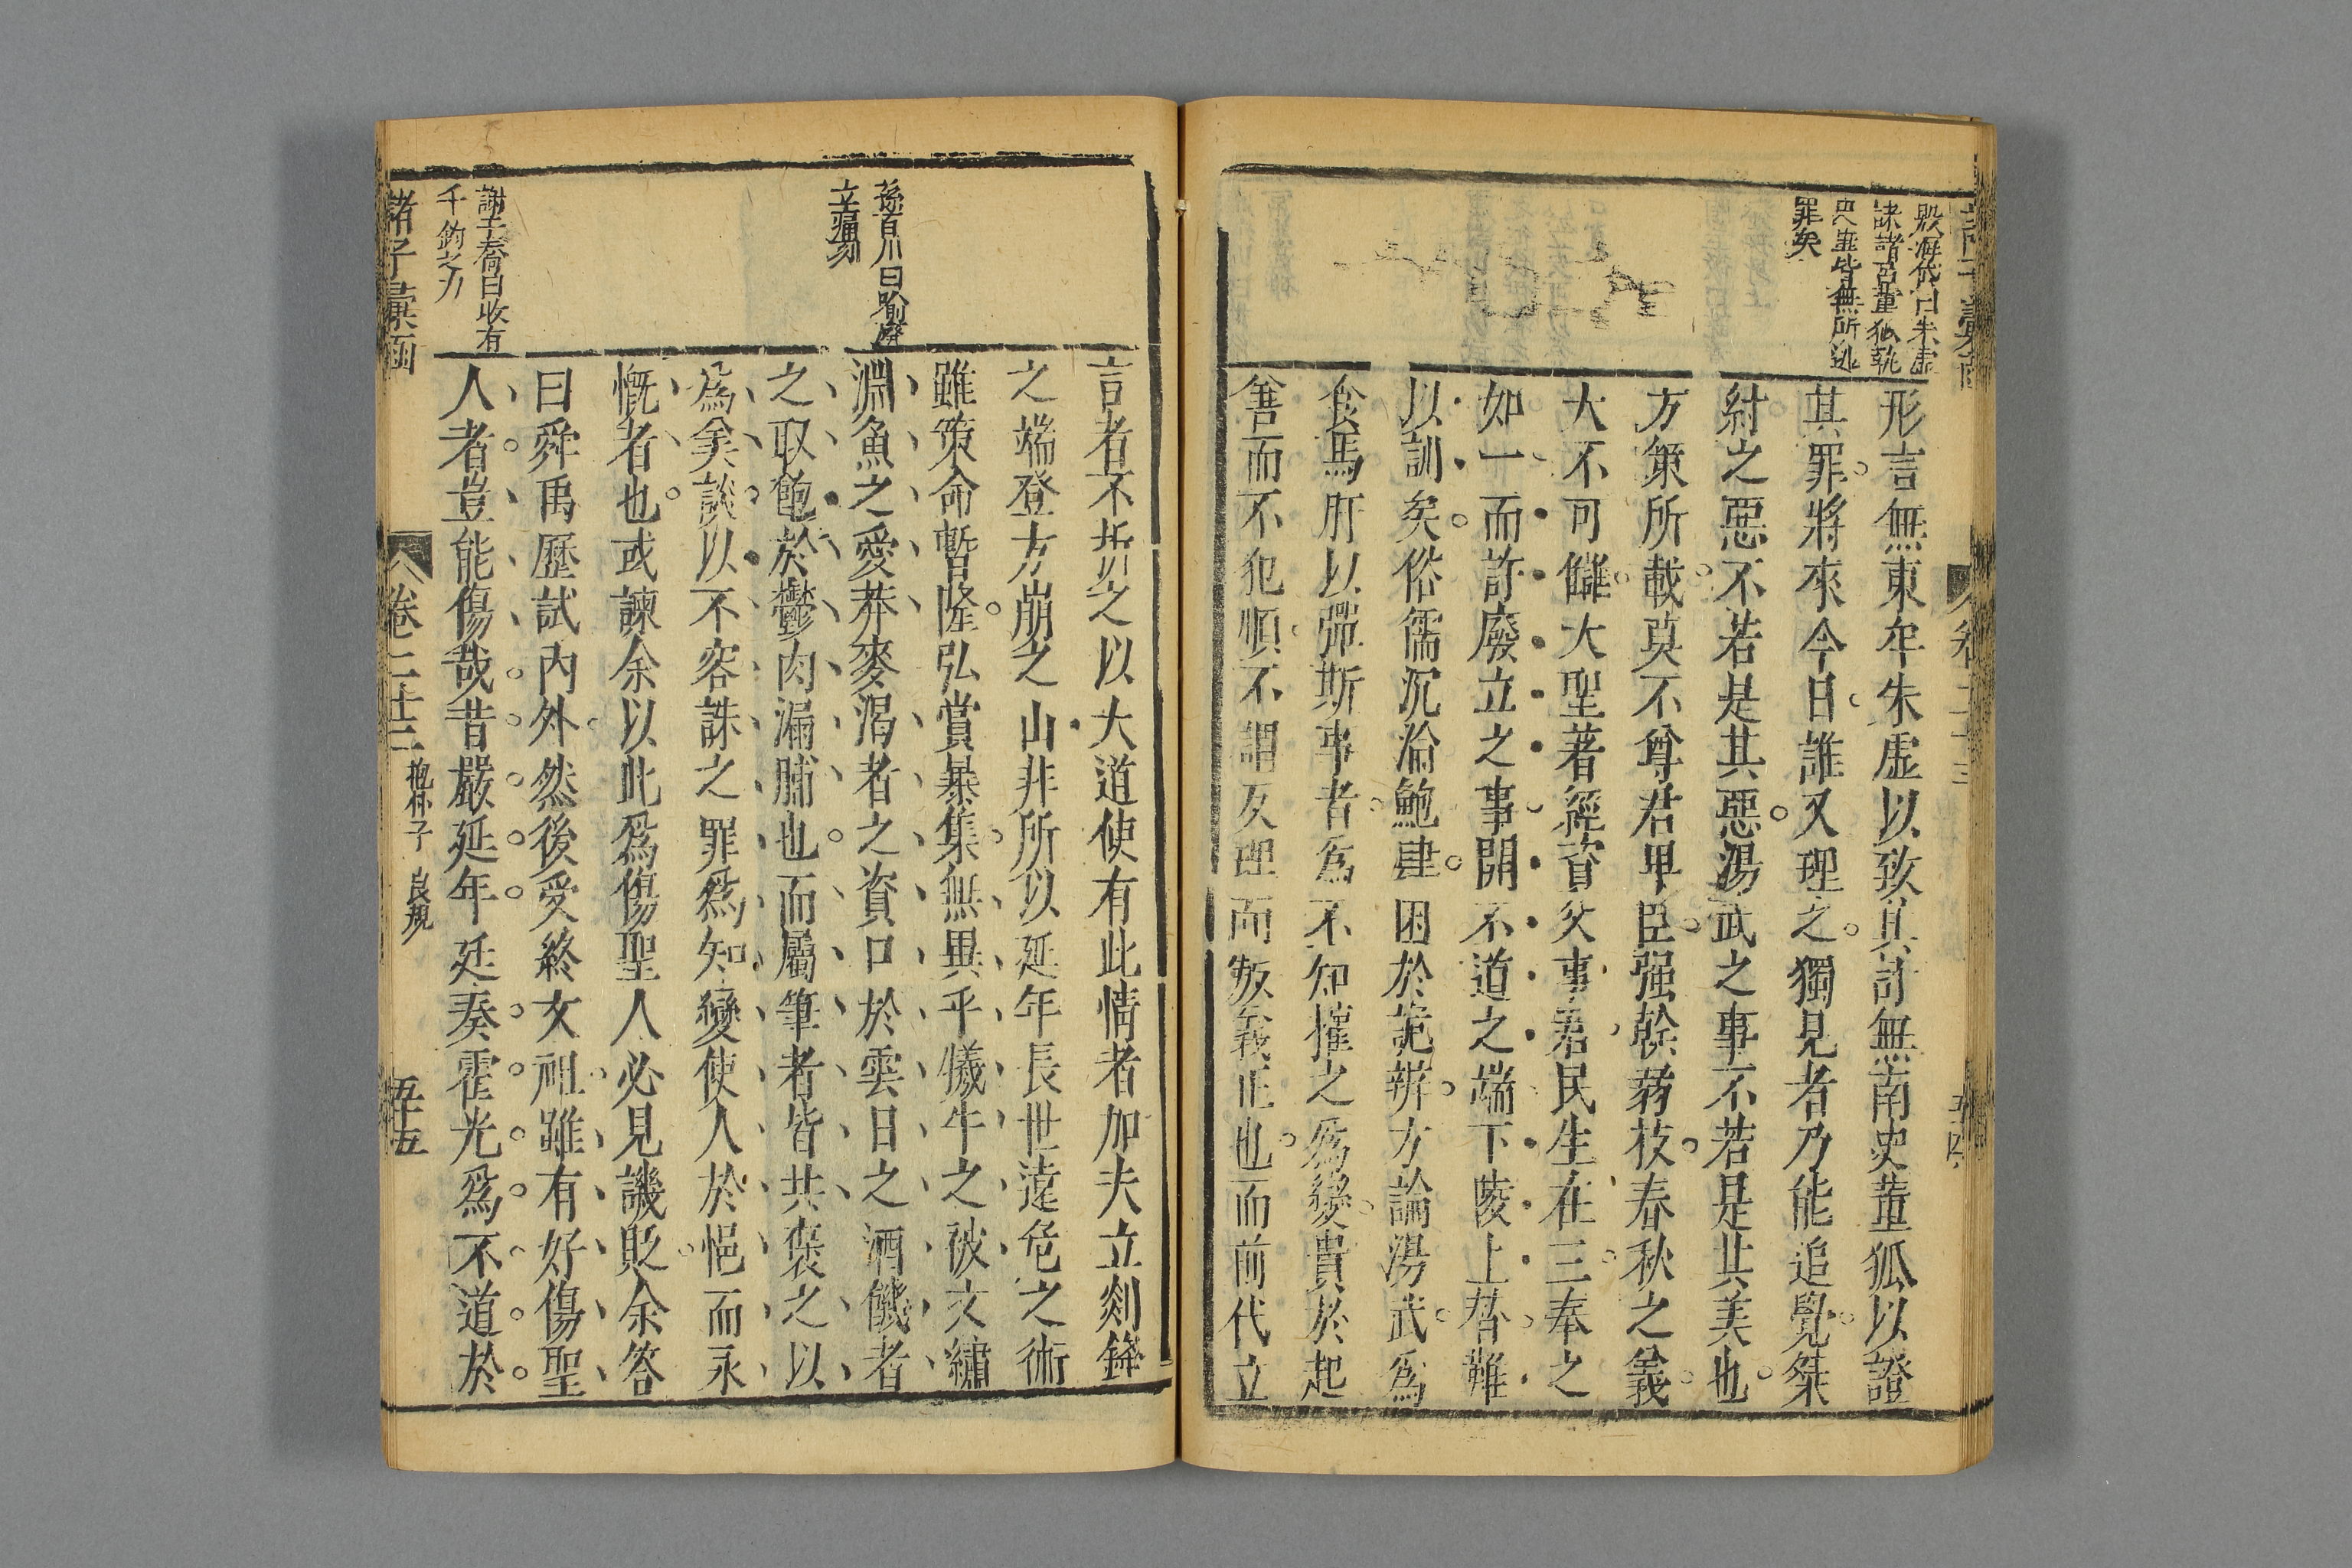 殷海岱曰朱虛
誅諸呂董狐執
史輩皆無所逃
罪矣
形言無東牟朱虛以致其計無南史董狐以證
其罪將來今日誰又理之獨見者乃能追覺桀
紂之惡不若是其惡湯武之事不若是其美也
方策所載莫不尊君卑臣强榦弱枝春秋之義
大不可讎大聖著經資父事君民生在三奉之
如一而許廢立之事開不道之端下陵上替難
以訓矣俗儒沉淪鮑肆困於詭辨方論湯武爲
食馬肝以彈斯事者爲不知權之爲變貴於起
善而不犯順不謂反理而叛義正也而前代立
孫百川曰喻廢
立痛切
言者不折之以大道使有此情者加夫立剡鋒
之端登方崩之山非所以延年長世遠危之術
雖策命暫隆弘賞暴集無異乎犧牛之被文繡
淵魚之愛莽麥渴者之資口於雲日之酒饑者
之取飽於鬱肉漏脯也而屬筆者皆共褒之以
為美談以不容誅之罪爲知變使人於悒而永
慨者也或諫余以此爲傷聖人必見譏貶余答
曰舜禹歷試內外然後受終文祖雖有好傷聖
人者豈能傷哉昔嚴延年廷奏霍光爲不道於
謝千喬曰收有
千鈞之力
諸子彙函
卷二十三 抱朴子 良規 五十五